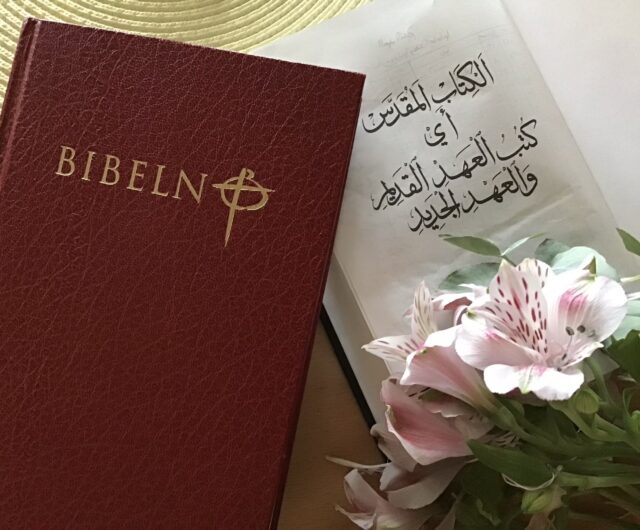 BIBELN
اَلْكِتَابُ الْمُقَدَّسُ
أَيْ
كُتُبُ الْعَهْدِ الْقَدِيمِ
وَالْعَهْدِ الْجَدِيدِ